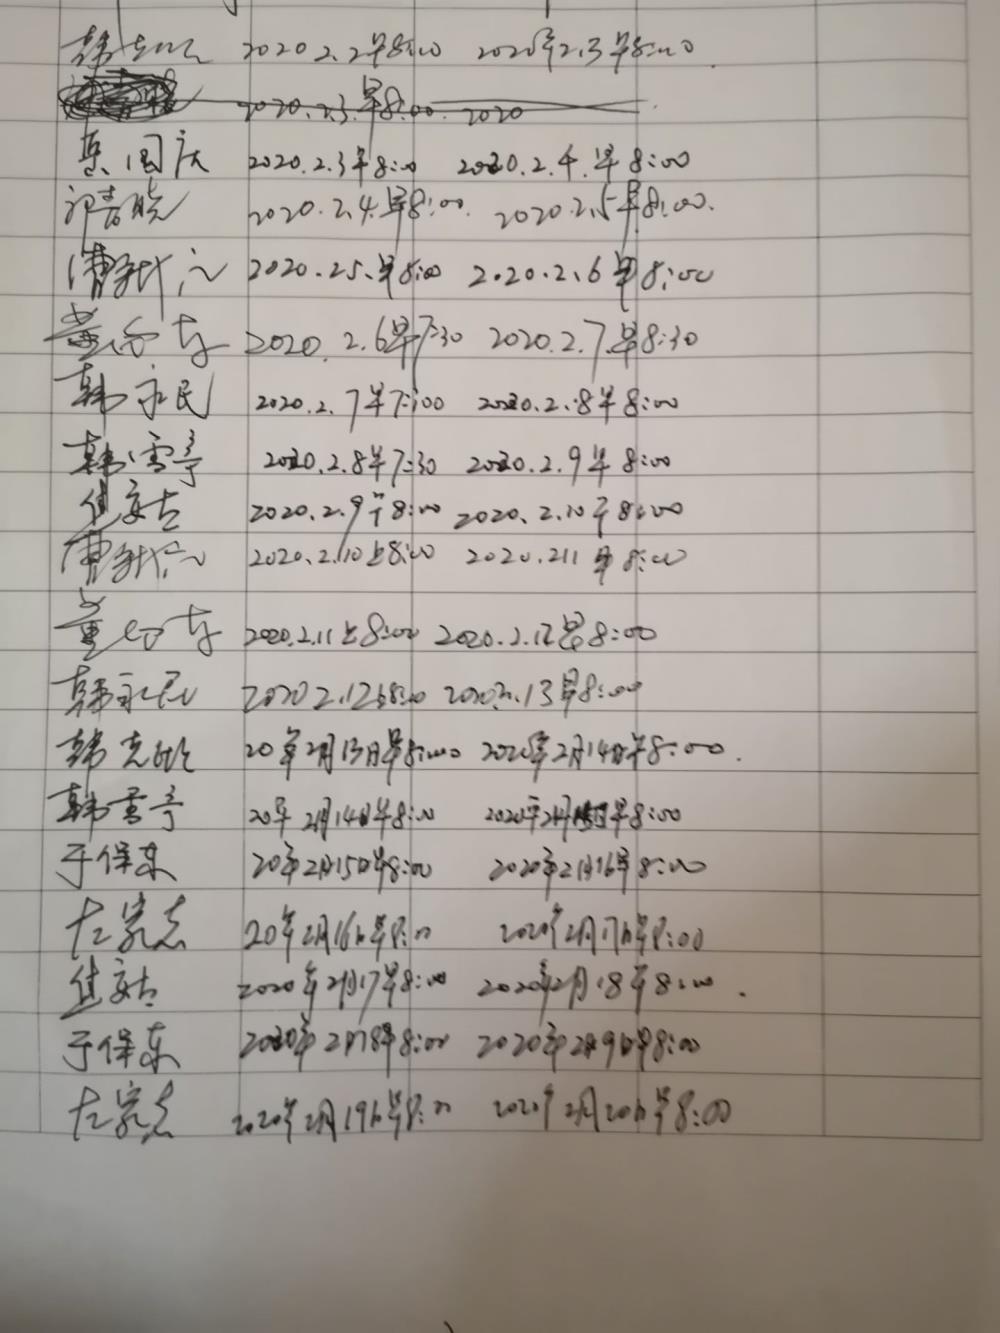 韩 2020.2.2早8:00 2020年2.3早8:00
2020.2.3.早8:00. 2020
国庆 2020.2.3早8:00 2020.2.4.早8:00
祁春晓 2020.2.4.早8:00. 2020.2.5早8:00.
2020.2.5.早8:00 2020.2.6早8:00
董 2020.2.6早7:30 2020.2.7.早8:30
韩永民 2020.2.7早7:00 2020.2.8早8:00
韩雪亭 2020.2.8早7:30 2020.2.9早8:00
2020.2.9早8:00 2020.2.10早8:00
2020.2.10上8:00 2020.2.11早8:00
董 2020.2.11上8:00 2020.2.12早8:00
韩永民 2020.2.12上8:00 2020.2.13早8:00
韩志 20年2月13日早8:00 2020年2月14日早8:00.
韩雪亭 20年2月14日早8:00 2020年2月15日早8:00
于保东 20年2月15日早8:00 2020年2月16早8:00
左家志 20年2月16日早8:00 2020年2月17日早8:00
2020年2月17早8:00 2020年2月18早8:00.
于保东 2020年2月18早8:00 2020年2月19日早8:00
左家志 2020年2月19日早8:00 2020年2月20日早8:00